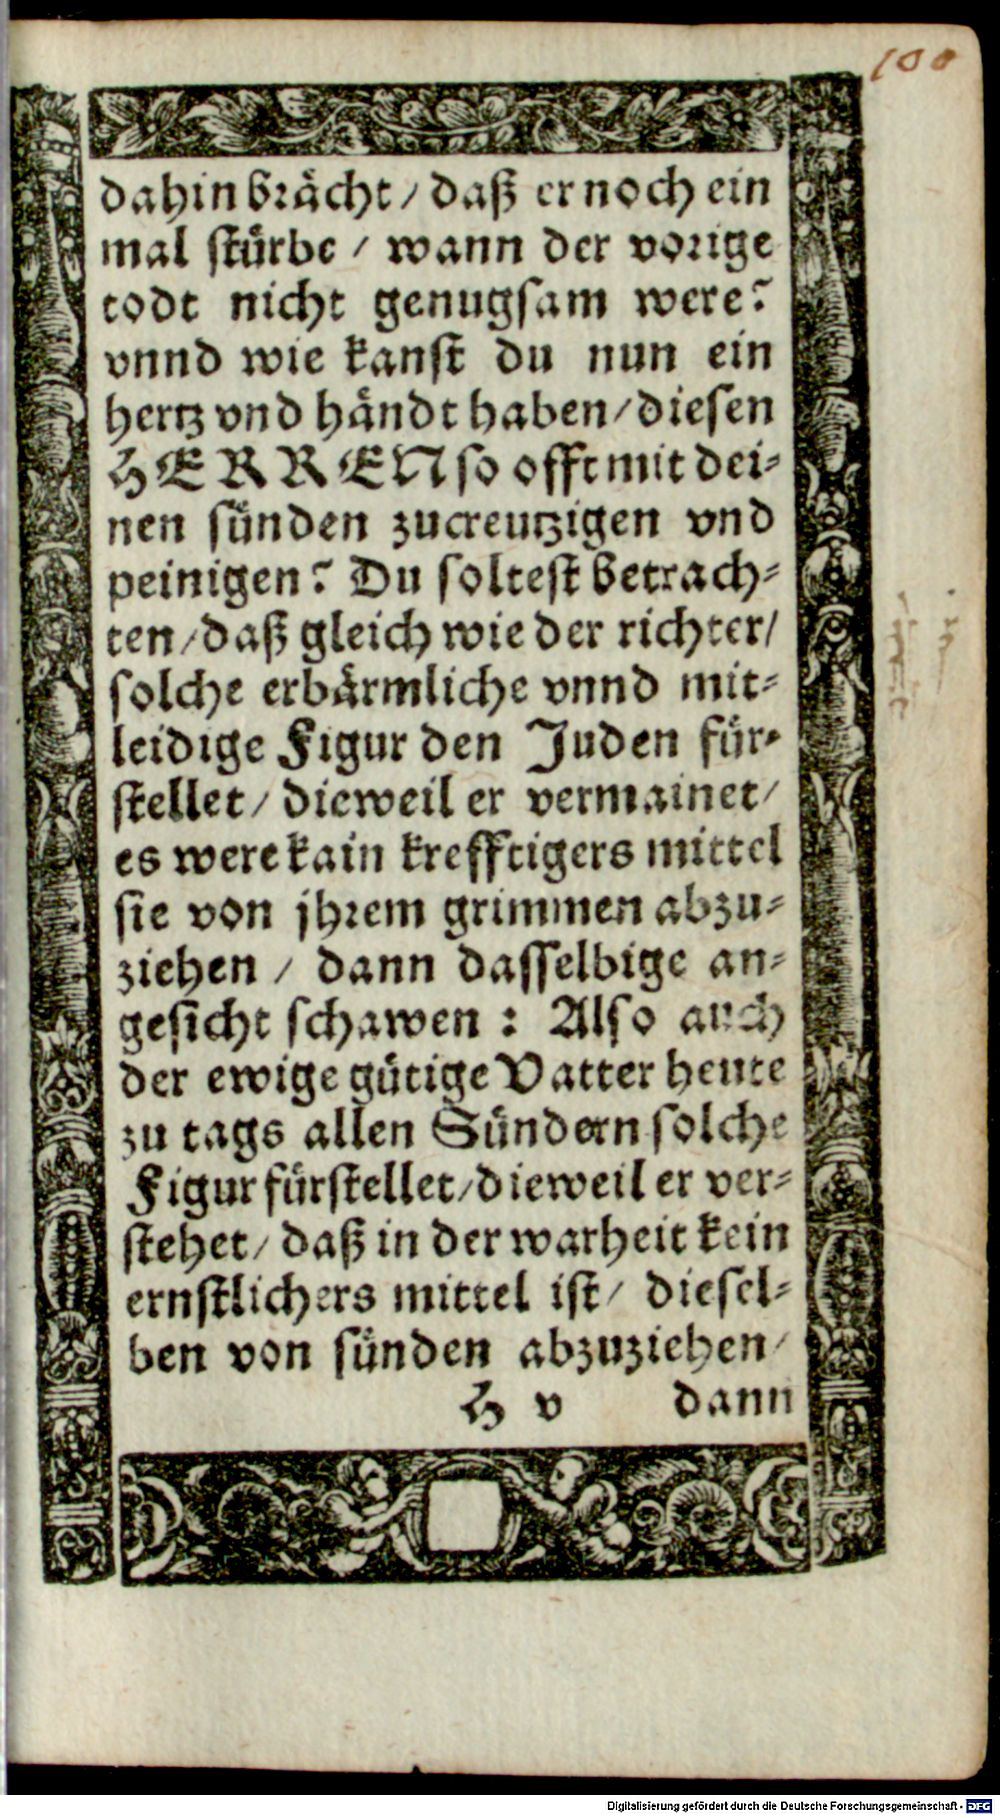 100
dahin brächt / daß er noch ein
mal stürbe / wann der vorige
todt nicht genugsam were?
vnnd wie kanst du nun ein
hertz vnd händt haben / diesen
HERREN so offt mit dei-
nen sünden zucreutzigen vnd
peinigen? Du soltest betrach-
ten / daß gleich wie der richter /
solche erbärmliche vnnd mit-
leidige Figur den Juden für-
stellet / dieweil er vermainet /
es were kain krefftigers mittel
sie von jhrem grimmen abzu-
ziehen / dann dasselbige an-
gesicht schawen : Also auch
der ewige gütige Vatter heute
zu tags allen Sündern solche
Figur fürstellet / dieweil er ver-
stehet / daß in der warheit kein
ernstlichers mittel ist / diesel-
ben von sünden abzuziehen /
H v dann
Digitalisierung gefördert durch die Deutsche Forschungsgemeinschaft - DFG